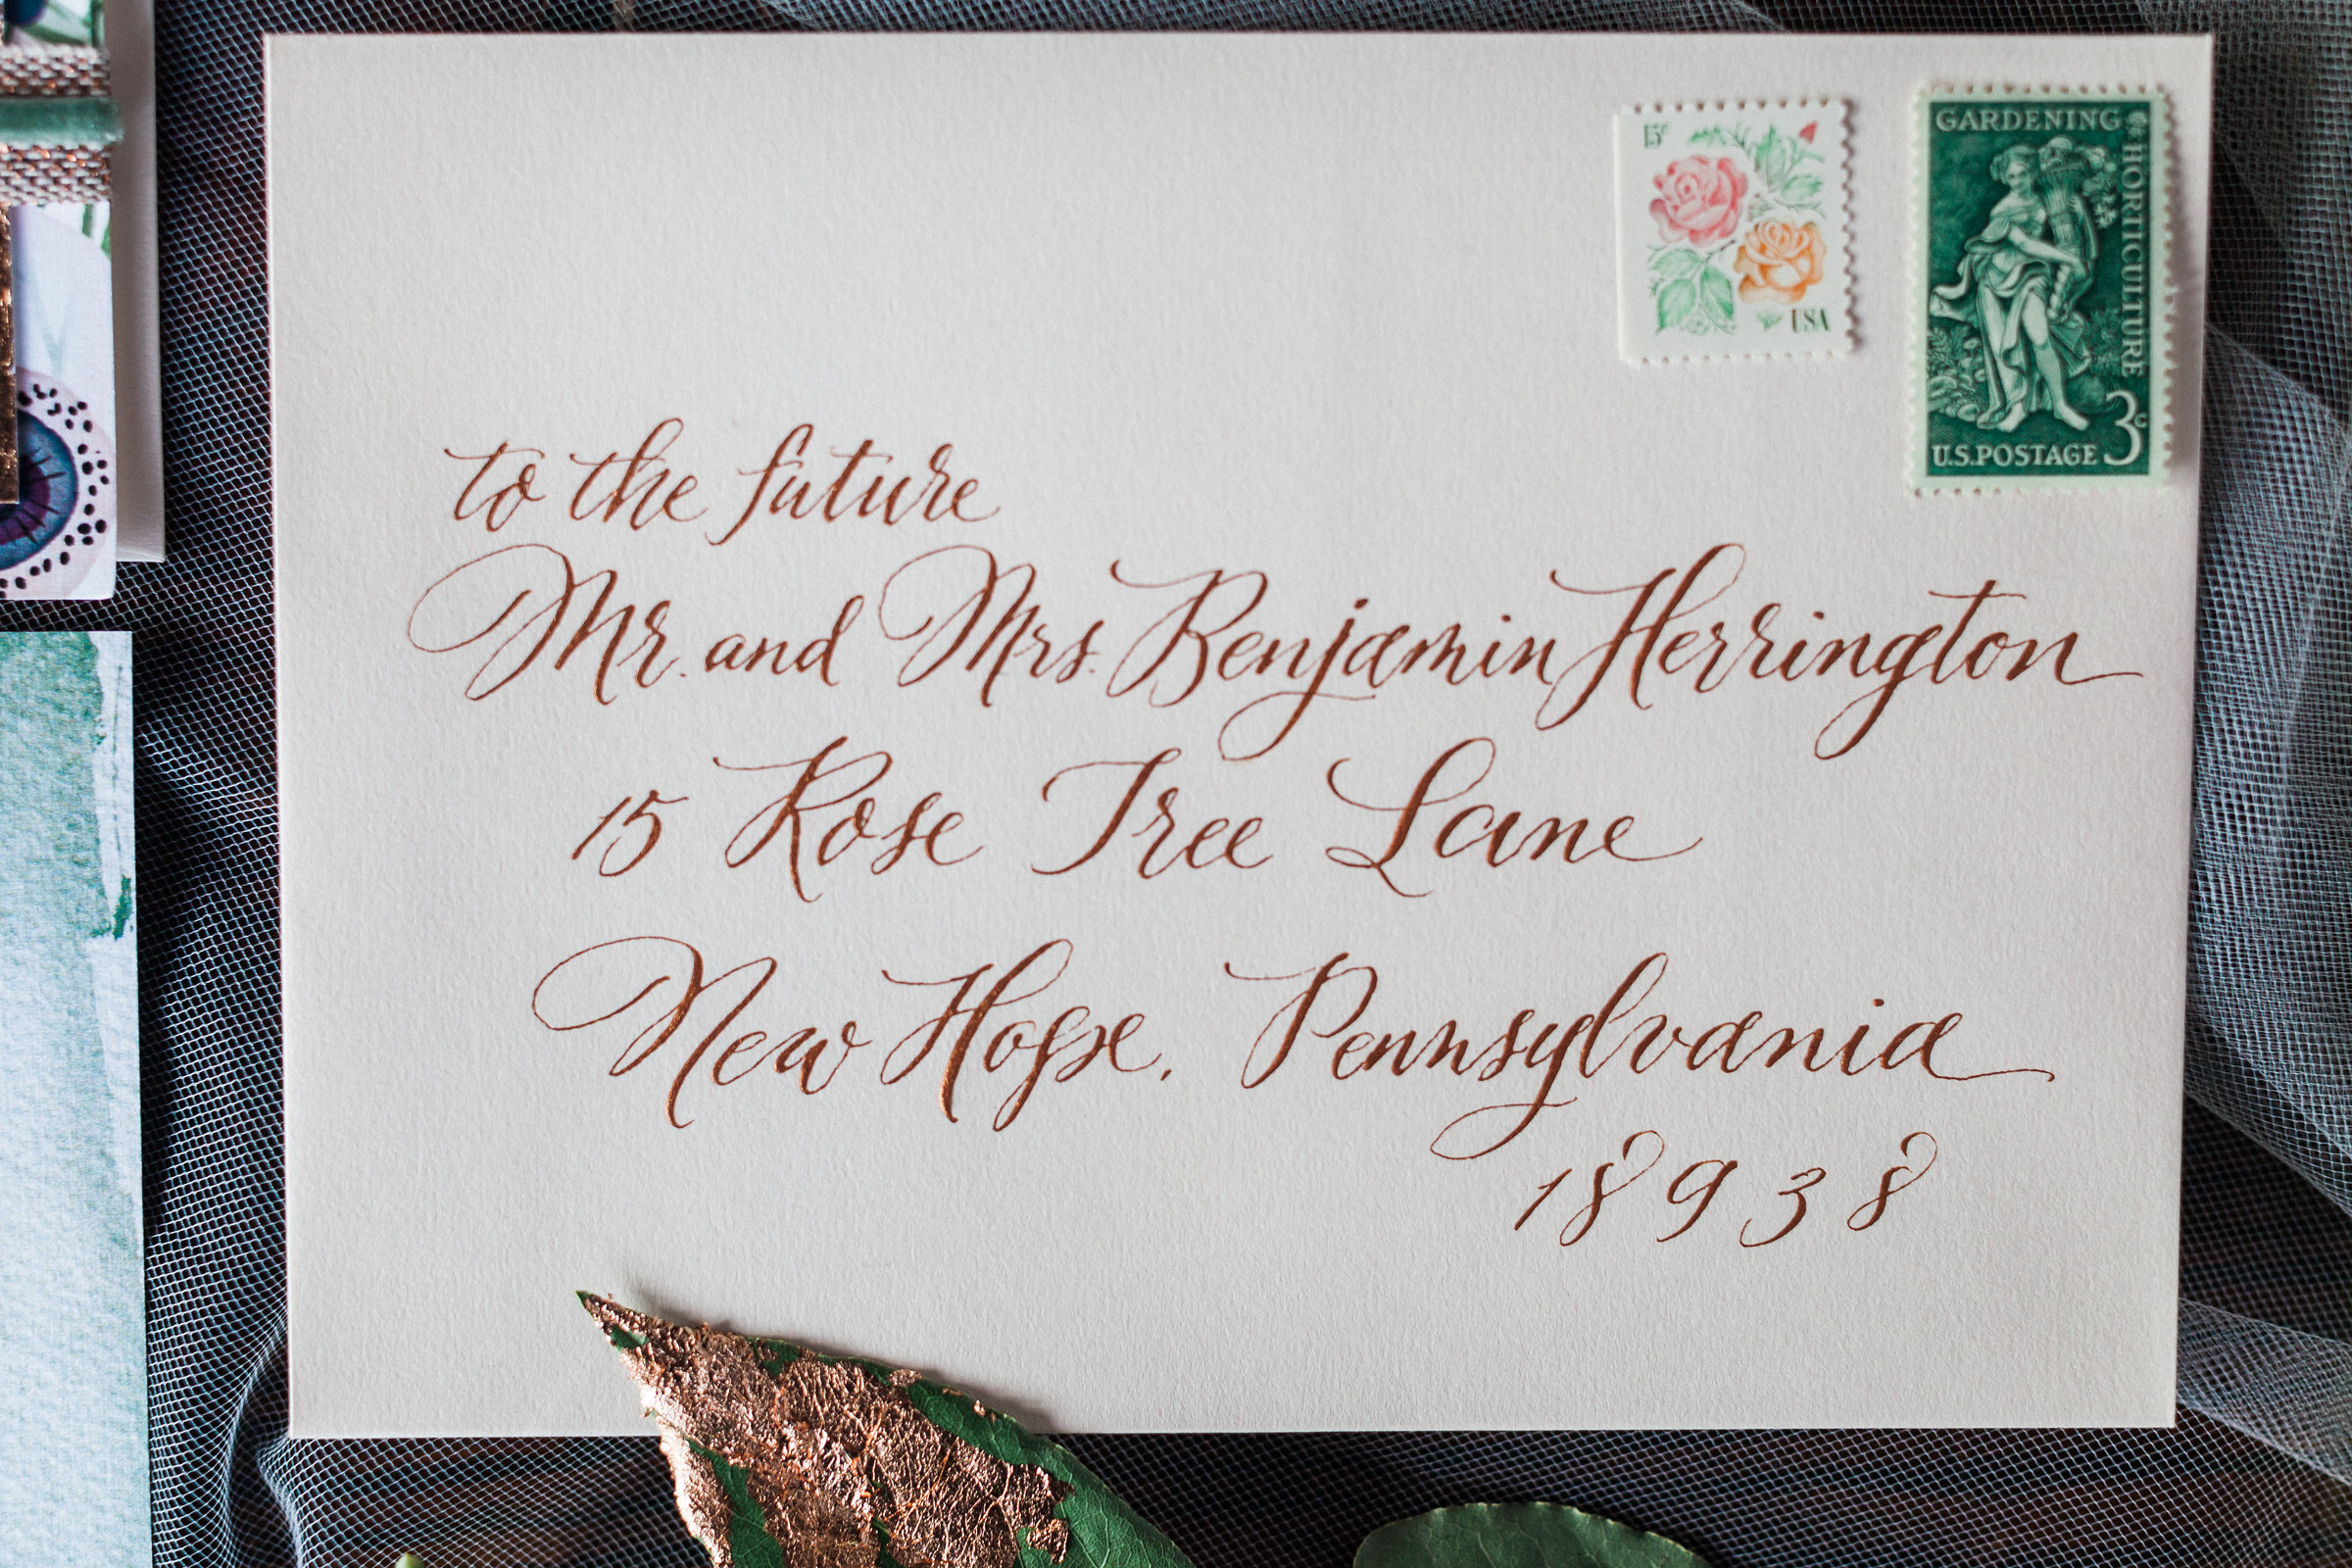 15c
USA
GARDENING
& HORTICULTURE
3c
U.S.POSTAGE
to the future
Mr. and Mrs. Benjamin Herrington
15 Rose Tree Lane
New Hope, Pennsylvania
18938